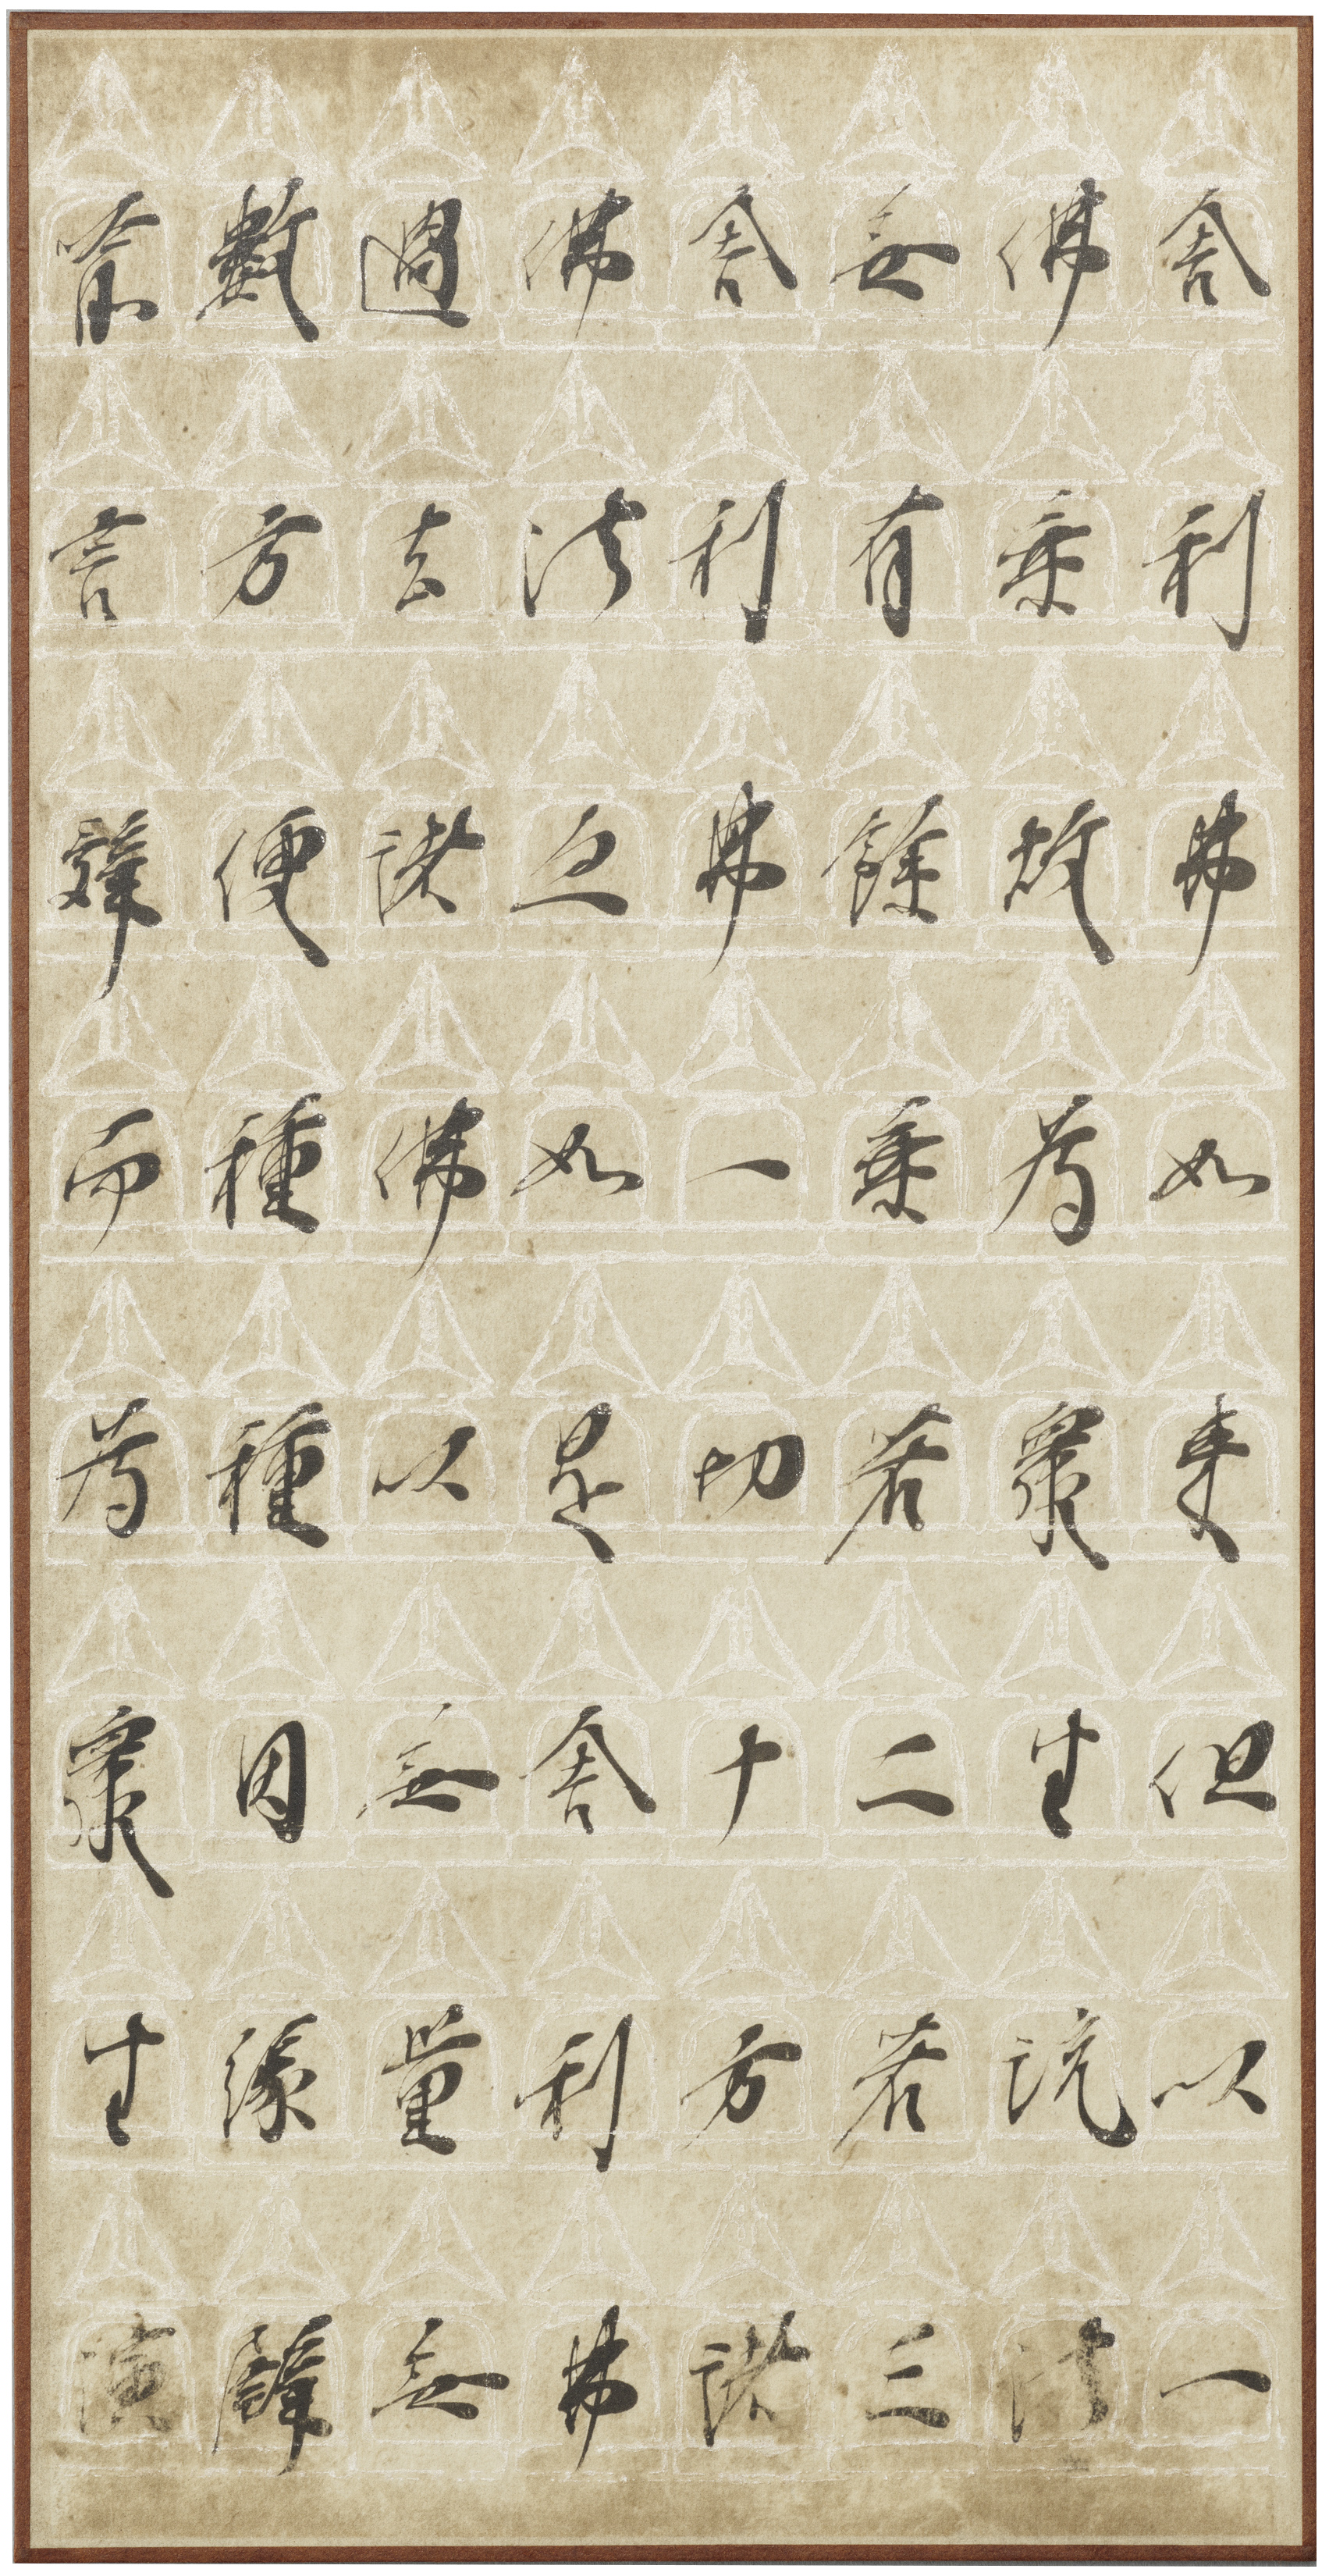 舍利弗如來但以一
佛乘故為眾生說法
無有餘乘若二若三
舍利弗一切十方諸
佛法亦如是舍利弗
過去諸佛以無量無
數方便種種因緣譬
喻言辭而為眾生演